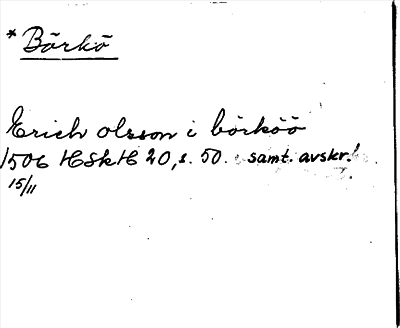 * Börkö
Erich olsson i börköö
1506 HSkH 20, s. 50. samt. avskr.!
15/11